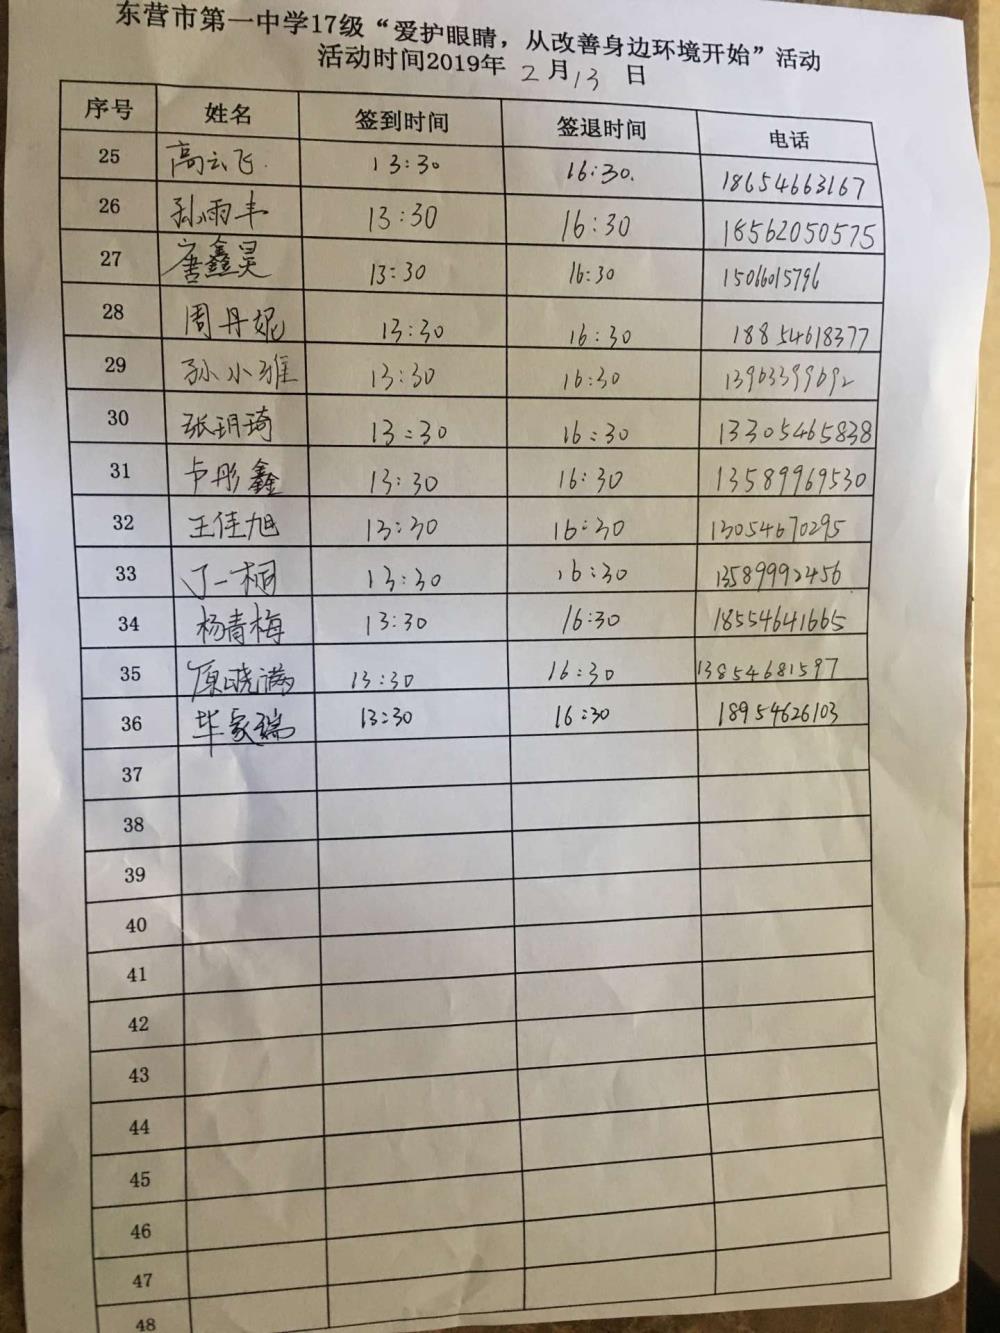 东营市第一中学17级“爱护眼睛，从改善身边环境开始”活动
活动时间2019年 2 月 13 日
序号 姓名 签到时间 签退时间 电话
25 高云飞 13:30 16:30. 18654663167
26 孙雨丰 13:30 16:30 18562050575
27 唐鑫昊 13:30 16:30 15066015796
28 周丹妮 13:30 16:30 18854618377
29 孙小雅 13:30 16:30 13963399692
30 张玥琦 13:30 16:30 13305465838
31 卢彤鑫 13:30 16:30 13589969530
32 王佳旭 13:30 16:30 13054670295
33 丁一桐 13:30 16:30 13589992456
34 杨青梅 13:30 16:30 18554641665
35 原晓满 13:30 16:30 13854681597
36 毕家瑞 13:30 16:30 18954626103
37
38
39
40
41
42
43
44
45
46
47
48